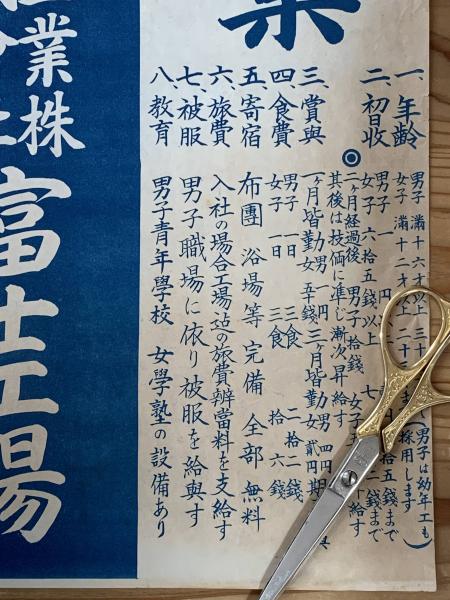 一、年齢 男子 満十六才以上 三十 (男子は幼年工も
女子 満十二才以上 二十 まで 採用します
二、初日収 男子 一円 十五銭まで
女子 六拾五銭以上 七 二銭まで
◎二ヶ月経過後 男子 拾銭 女子 給す
其後は技価に準じ漸次昇給す
三、賞與 一ヶ月皆勤 男 一円 女 五十銭 三月皆勤 男 四円 女 貳円 期
四、食費 男子 一日 三食 二拾二銭
女子 一日 三食 拾六銭
五、寄宿 布團 浴場等完備 全部無料
六、旅費 入社の場合工場迄の旅費辨當料を支給す
七、被服 男子職場に依り被服を給與す
八、教育 男子青年學校 女學塾の設備あり
業株
富士工場